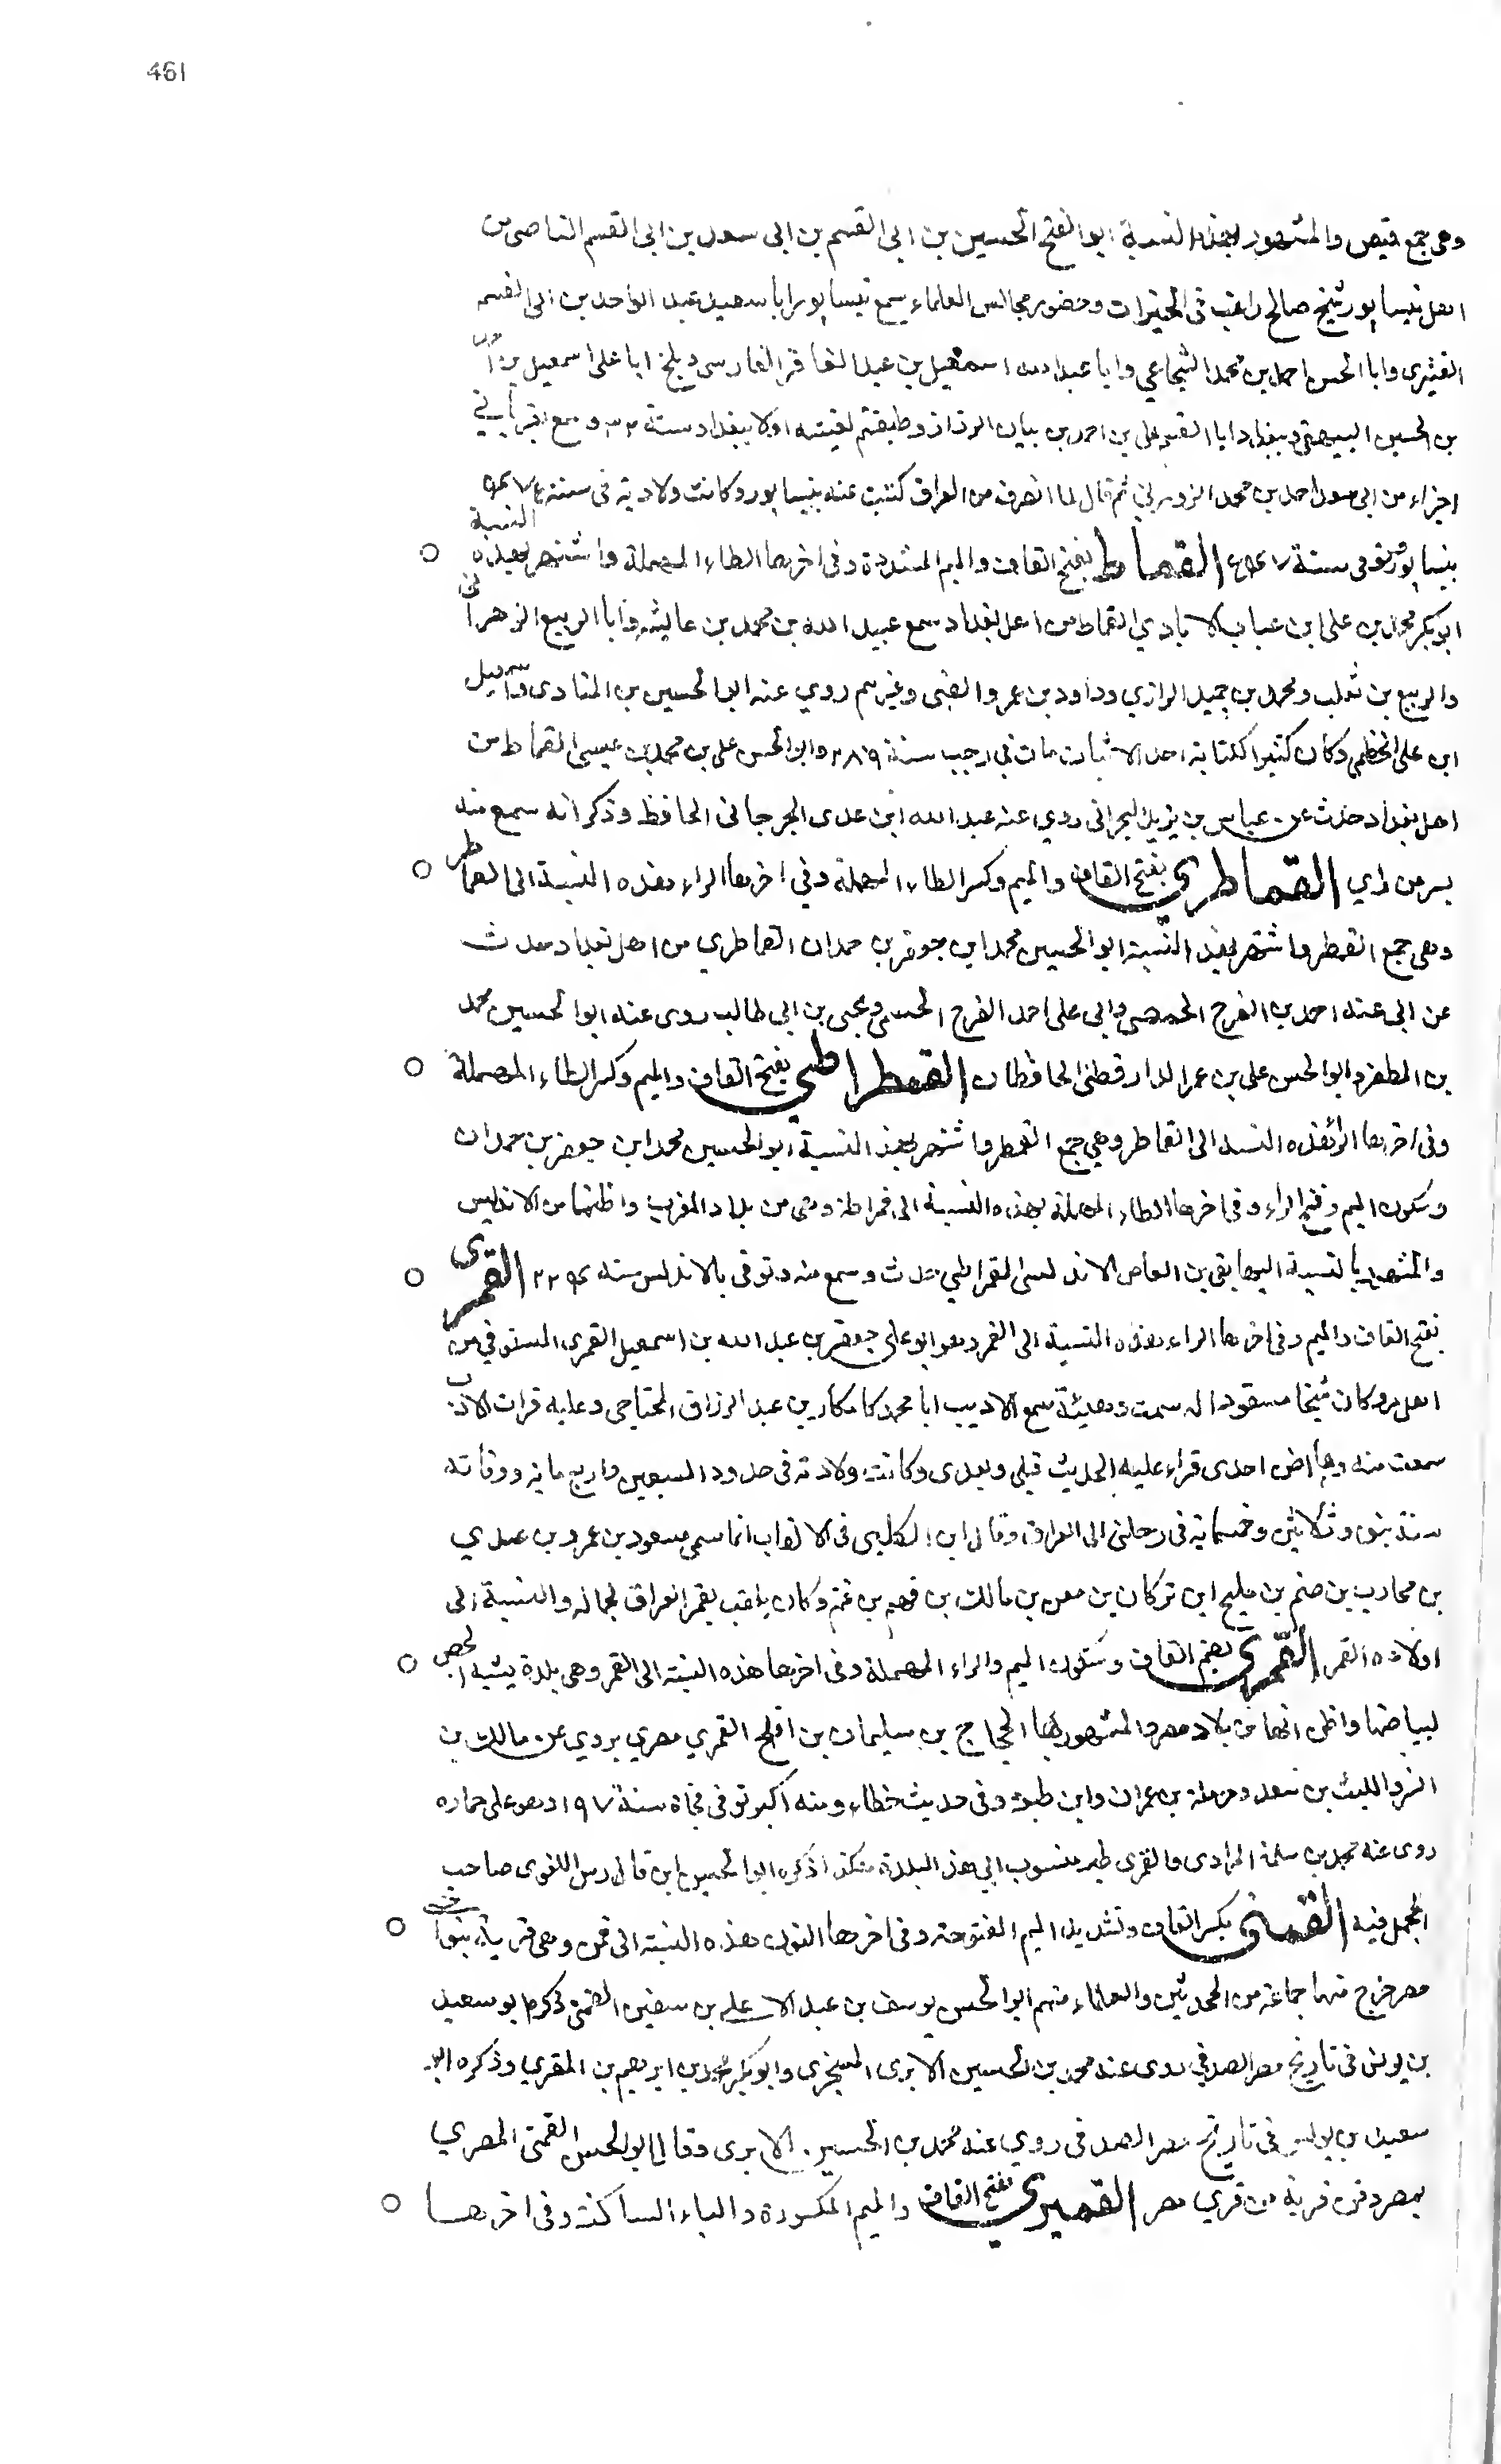 461
وهى جمع قميص والمشهور بهذه النسبة ابو الفتح الحسين بن ابى القسم بن ابى سعد بن ابى القسم القاصى من
اهل نيسابور شيخ صالح راغب فى الخيرات وحضور مجالس العلماء سمع نيسابور ابا سعيد عبد الواحد بن ابى القسم
القشيرى وابا الحسن احمد بن محمد الشجاعي وابا عبد الله اسمعيل بن عبد الغافر الفارسى وببلخ ابا على اسمعيل بن احمد
بن الحسين البيهقى وببغداد ابا القسم على بن احمد بن بيان الرزاز وطبقتهم لقيته اولا ببغداد سنة ٣٢ وسمع بقراءتي
اجزاء من ابى سعد احمد بن محمد الزوزني ثم قال لما انصرف من العراق كتبت عنه بنيسابور وكانت ولادته فى سنة
بنيسابور وتوفى سنة القماط بفتح القاف والميم المشددة وفى اخرها الطاء المهملة واشتهر بهذه النسبة
ابو بكر محمد بن على ابن عباب الايادي القماط من اهل بغداد سمع عبيد الله بن محمد بن عايشه وابا الربيع الزهرانى
والربيع بن ثعلب ومحمد بن حميد الرازي وداود بن عمرو الضبى وغيرهم روي عنه ابو الحسين بن المنادى واسمعيل
ابن على الخطبى وكان كثير الكتابة احد الاثبات مات في رجب سنة ٢٨٩ وابو الحسن على بن محمد بن عيسى القماط من
اهل بغداد حدث عن عباس بن يزيد البحرانى روي عنه عبد الله ابن عدى الجرجانى الحافظ وذكر انه سمع منه
بسر من راي القماطري بفتح القاف والميم وكسر الطاء المهملة وفي اخرها الراء هذه النسبة الى القماطر
وهى جمع القمطر واشتهر بهذه النسبة ابو الحسين محمد ابن جعفر بن حمدان القماطري من اهل بغداد حدث
عن ابى عتبه احمد بن الفرج الحمصى وابى على احمد الفرج الجشمى ويحيى بن ابى طالب روى عنه ابو الحسين محمد
بن المظفر وابو الحسن على بن عمر الدارقطنى الحافظان القمطراطي بفتح القاف والميم وكسر الطاء المهملة
وفى اخرها الراء هذه النسبه الى القماطر وهي جمع القمطر واشتهر بهذه النسبة ابو الحسين محمد ابن جعفر بن حمدان
وسكون الميم وفتح الراء وفى اخرها الطاء المهملة بهذه النسبة الى قمراطة وهى من بلاد المغرب واظنها من الاندلس
والمشهور بالنسبة اليها بقى بن العاص الاندلسى القمراطي حدث وسمع منه وتوفى بالاندلس سنه القمرى
بفتح القاف والميم وفى اخرها الراء هذه النسبة الى القمر وهو ابو على جعفر بن عبد الله بن اسمعيل القمرى المستوفي من
اهل مرو كان شيخا مسقود اله سمت وهيئة سمع الاديب ابا محمد كامكار بن عبد الرزاق المحتاجى وعليه قرات الادب
سمعت منه وهو ايضا احدى قراء عليه الحديث قبلى وبعدى وكانت ولادته فى حدود السبعين واربع مايه ووفاته
سنة نيف وثلاثين وخمسمايه فى رحلتى الى العراق وقال ابن الكلبى فى الالقاب انما سمى مسعود بن عمرو بن عدي
بن محارب بن صنم بن مليح ابن تركان بن معن بن مالك بن فهم بن غنم وكان يلقب بقمر العراق لجماله والنسبة الى
اولاده القمر القمرى بضم القاف وسكون الميم والراء المهملة وفى اخرها هذه النسبة الى القمر وهى بلدة يشبه الجص
لبياضها واظن انها من بلاد مصر والمشهور بها الحجاج بن سليمان بن افلح القمري مصري يروي عن مالك بن
انس والليث بن سعد وحرملة بن عمران وابن لهيعة وفى حديث خطاء ومنه اكبر توفى فجاة سنة ١٩٧ وهو على حماره
روى عنه محمد بن سلمة المرادى والقمرى طير منسوب الى هذه البلدة هكذا ذكره ابو الحسين ابن فارس اللغوى صاحب
المجمل فيه القمنى بكسر القاف وتشديد الميم المفتوحة وفى اخرها النون هذه النسبة الى قمن وهى قرية بنواحى
مصر خرج منها جماعة من المحدثين والعلماء منهم ابو الحسن يوسف بن عبد الاعلى بن سفين القمنى ذكره ابو سعيد
بن يونس فى تاريخ مصر الصدفي روى عنه محمد بن الحسين الابرى السجزى وابو بكر محمد بن ابرهيم بن المقري وذكره ابو
سعيد بن يونس فى تاريخ مصر الصدفى روي عنه محمد بن الحسين الابرى وقال ابو الحسن القمنى المصري
بمصر وقمن قرية من قري مصر القميري بفتح القاف والميم المكسورة والياء الساكنة وفى اخرها